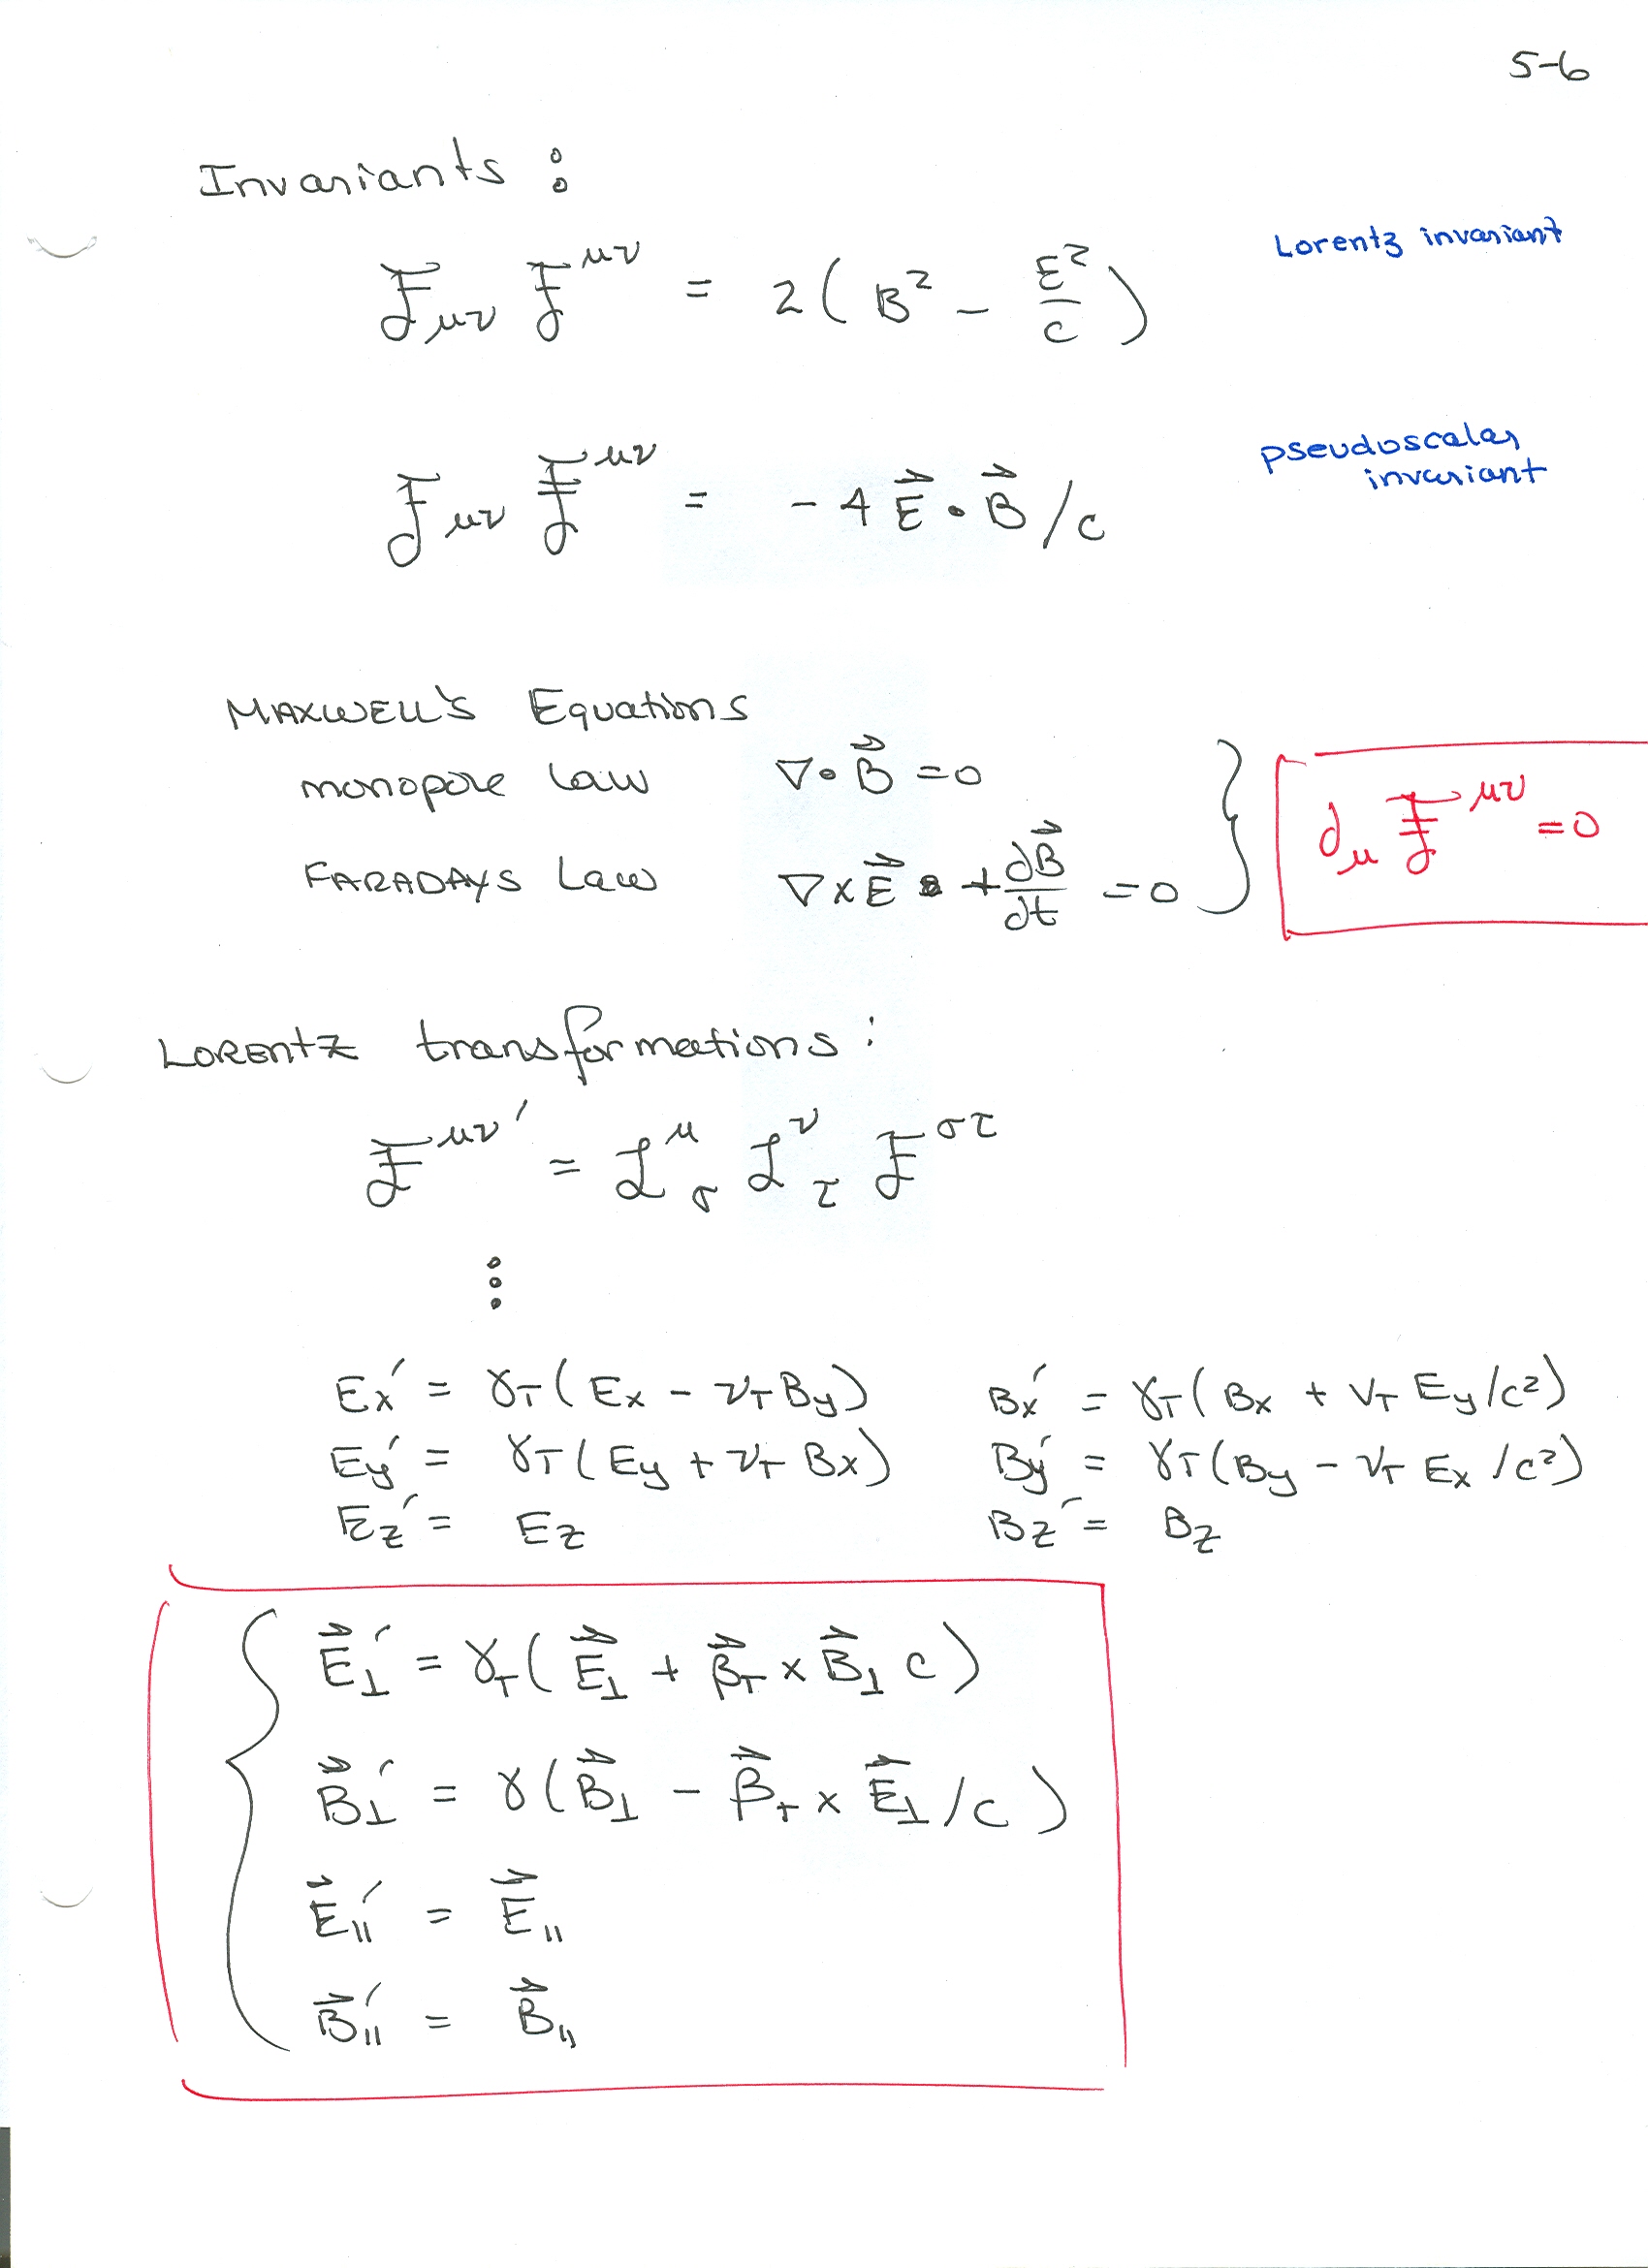 5-6
Invariants :
ℱ_μν ℱ^μν = 2( B² - E²/c ) Lorentz invariant
ℱ_μν ℱ̶^μν = - 4 E⃗ • B⃗ /c pseudoscalar
invariant
MAXWELL'S Equations
monopole law ∇•B⃗ =0
FARADAYS Law ∇×E⃗ + ∂B⃗/∂t =0 } ∂_μ ℱ̶^μν =0
LORENTZ transformations :
ℱ̶^μν′ = ℒ^μ_σ ℒ^ν_τ ℱ̶^στ
⋮
Ex′ = γ_T( Ex - v_T By) Bx′ = γ_T( Bx + v_T Ey/c²)
Ey′ = γ_T( Ey + v_T Bx) By′ = γ_T(By - v_T Ex /c²)
Ez′ = Ez Bz′ = Bz
E⃗⊥′ = γ_T( E⃗⊥ + β⃗_T × B⃗⊥ c )
B⃗⊥′ = γ( B⃗⊥ - β⃗_T × E⃗⊥ /c )
E⃗∥′ = E⃗∥
B⃗∥′ = B⃗∥